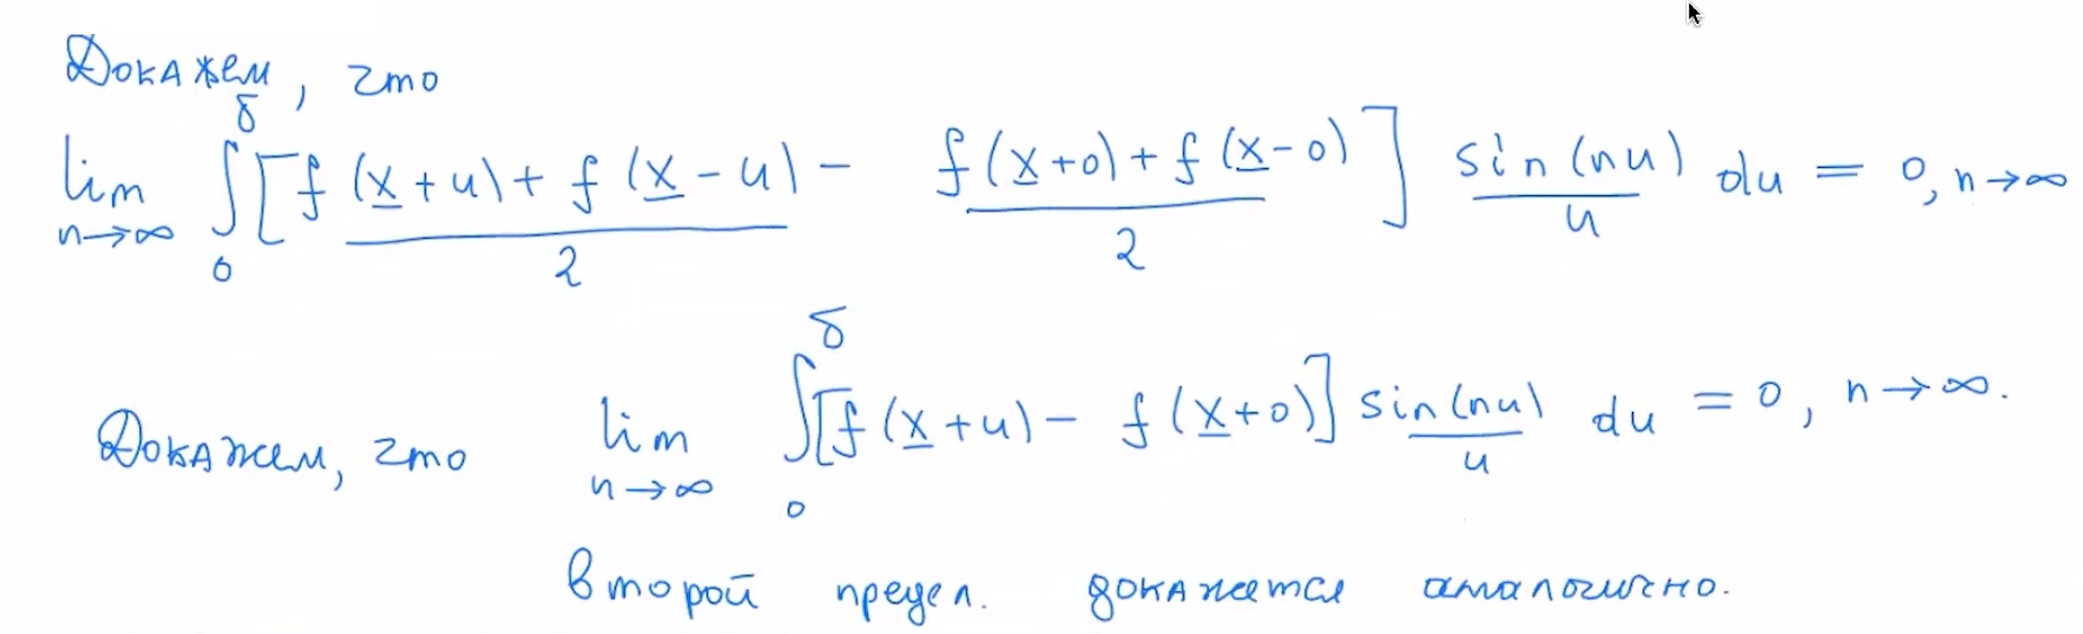 Докажем, что
lim_{n→∞} ∫_0^δ [ (f(x̲+u) + f(x̲−u))/2 − (f(x̲+0) + f(x̲−0))/2 ] (sin(nu))/u du = 0, n→∞
Докажем, что lim_{n→∞} ∫_0^δ [f(x̲+u) − f(x̲+0)] (sin(nu))/u du = 0, n→∞.
Второй предел. докажется аналогично.